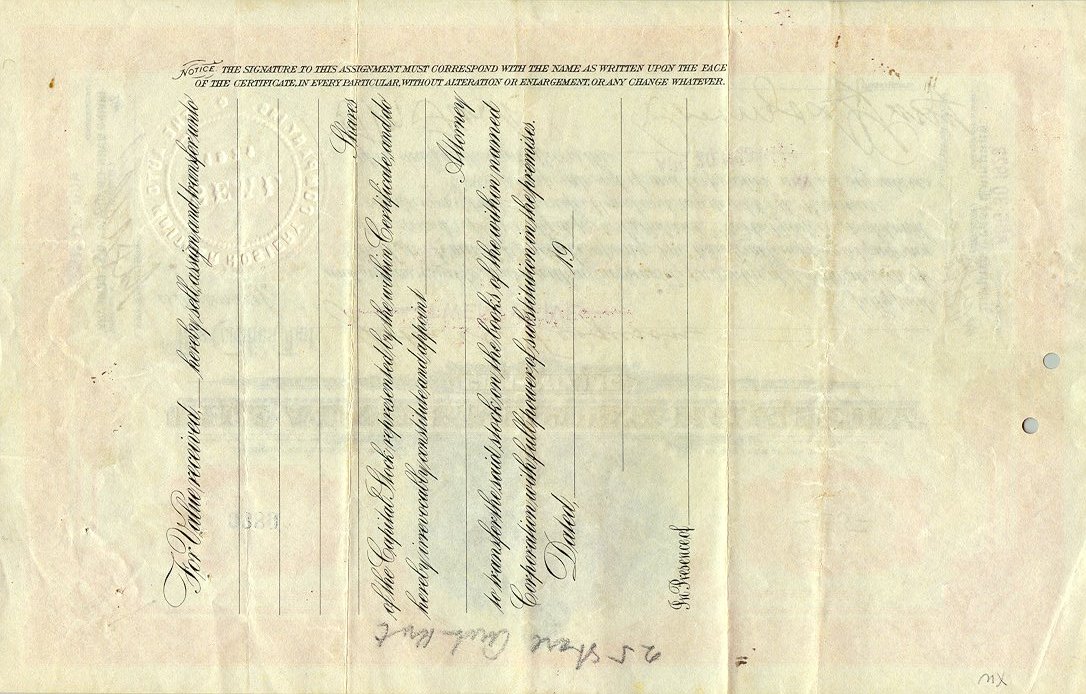 NOTICE. THE SIGNATURE TO THIS ASSIGNMENT MUST CORRESPOND WITH THE NAME AS WRITTEN UPON THE FACE
OF THE CERTIFICATE, IN EVERY PARTICULAR, WITHOUT ALTERATION OR ENLARGEMENT, OR ANY CHANGE WHATEVER.
For Value received hereby sell, assign and transfer unto
Shares
of the Capital Stock represented by the within Certificate, and do
hereby irrevocably constitute and appoint
Attorney
to transfer the said stock on the books of the within named
Corporation with full power of substitution in the premises.
Dated, 19
In Presence of
25 Share